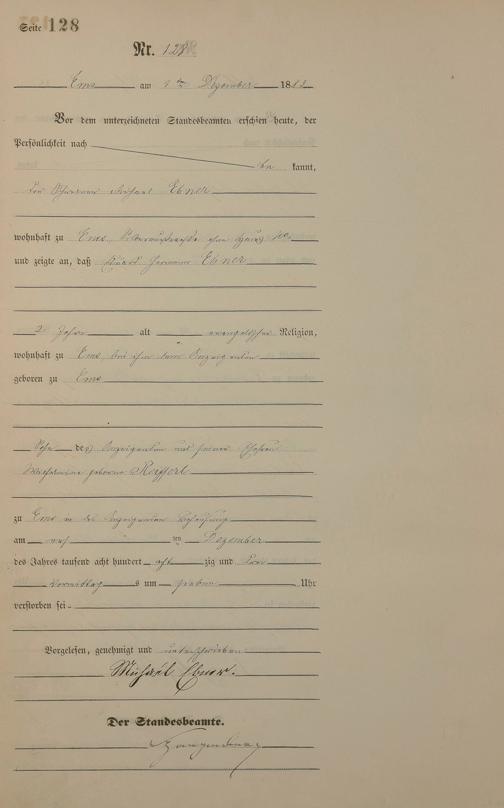 Seite 128
Nr. 128
Ems am Dezember 18
Vor dem unterzeichneten Standesbeamten erschien heute, der
Persönlichkeit nach
be kannt,
der Michael Ebner
wohnhaft zu Ems
und zeigte an, daß Eduard Hermann Ebner
2 Jahre alt evangelischer Religion,
wohnhaft zu Ems bei ihm dem Anzeigenden
geboren zu Ems
Sohn des Anzeigenden und seiner Ehefrau
Wilhelmine geborne
zu Ems in des Anzeigenden Behausung
am ten Dezember
des Jahres tausend acht hundert acht zig und
Vormittag s um sieben Uhr
verstorben sei
Vorgelesen, genehmigt und unterschrieben
Michael Ebner.
Der Standesbeamte.